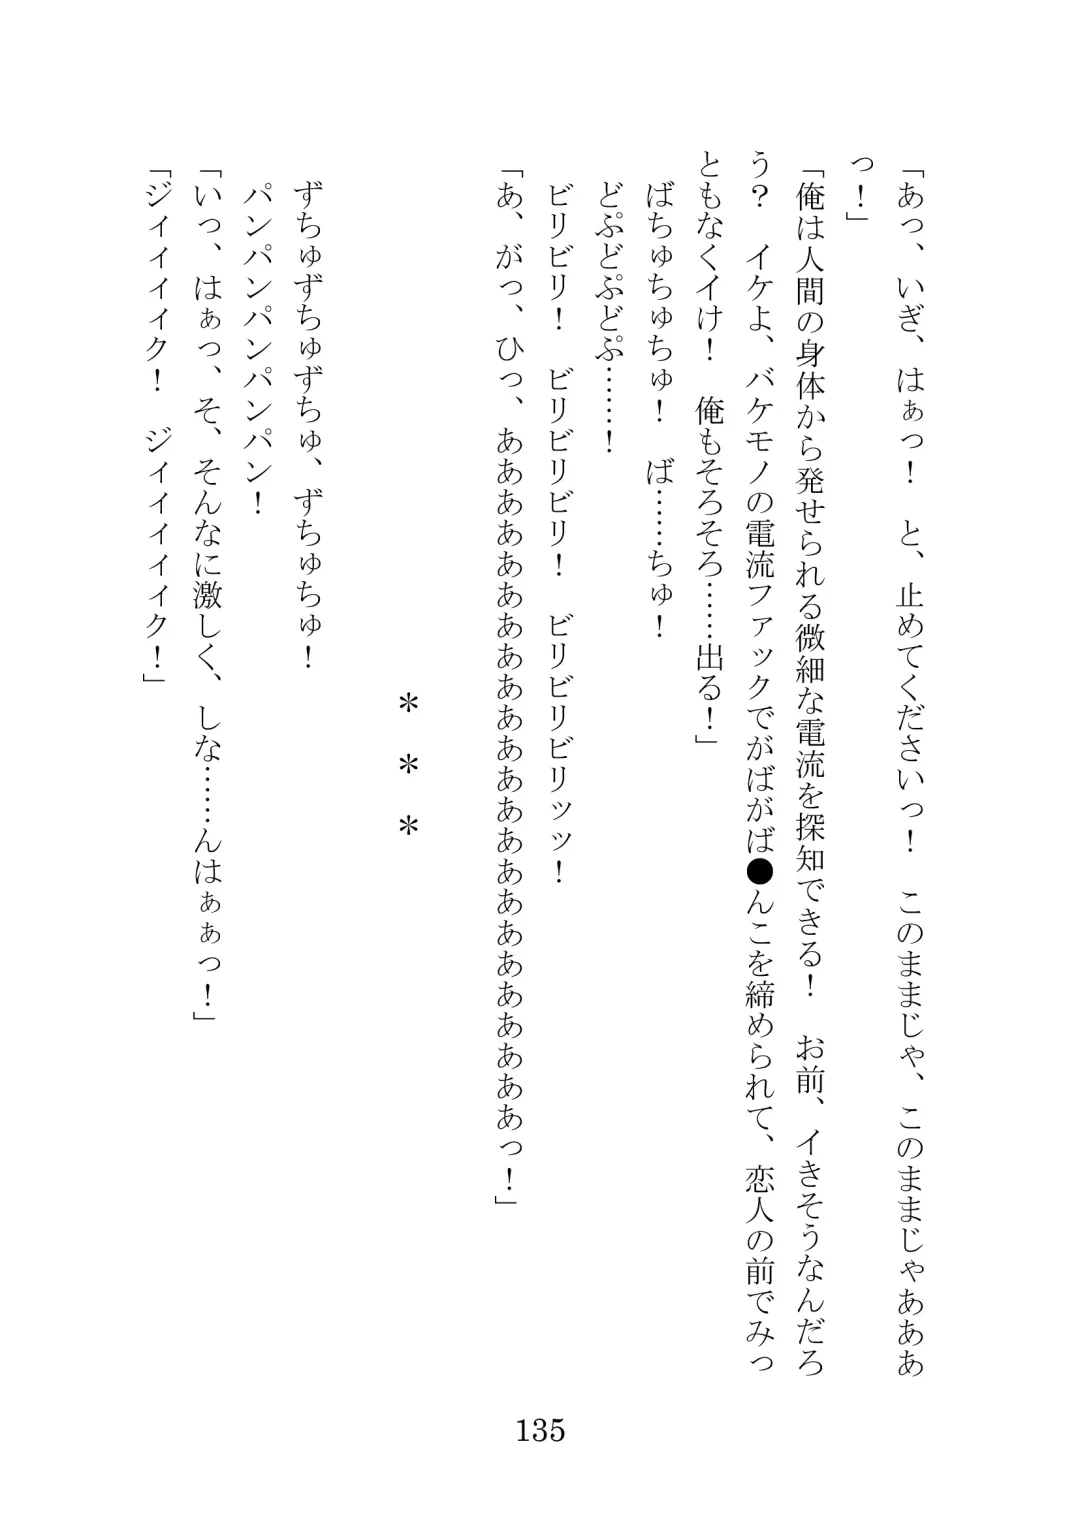 「あっ、いぎ、はぁっ！　と、止めてくださいっ！　このままじゃ、このままじゃあああ
っ！」
「俺は人間の身体から発せられる微細な電流を探知できる！　お前、イきそうなんだろ
う？　イケよ、バケモノの電流ファックでがばがば●んこを締められて、恋人の前でみっ
ともなくイけ！　俺もそろそろ……出る！」
　ばちゅちゅちゅ！　ば……ちゅ！
　どぷどぷどぷ……！
　ビリビリ！　ビリビリビリ！　ビリビリビリッッ！
「あ、がっ、ひっ、あああああああああああああああああああああああっ！」
＊　＊　＊
　ずちゅずちゅずちゅ、ずちゅちゅ！
　パンパンパンパンパン！
「いっ、はぁっ、そ、そんなに激しく、しな……んはぁぁっ！」
「ジィィィィク！　ジィィィィィク！」
135